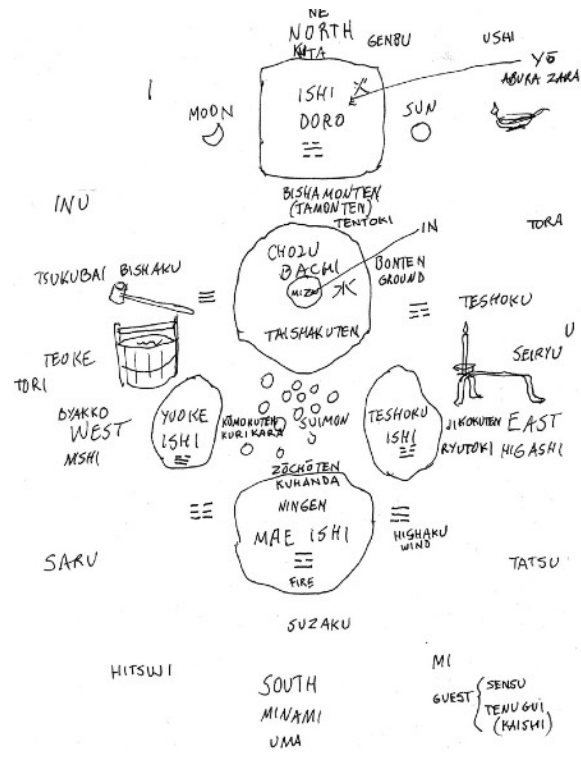 NE
NORTH
KITA
GENBU
USHI
YŌ
ABURA ZARA
I
MOON
ISHI 火
DORO
☵
SUN
BISHAMONTEN
(TAMONTEN)
TENTOKI
INU
IN
TORA
CHOZU
BACHI
MIZU
水
BONTEN
GROUND
TSUKUBAI BISHAKU
☰
☶
TAISHAKUTEN
TESHOKU
U
SEIRYU
TEOKE
TORI
BYAKKO
WEST
NISHI
YUOKE
ISHI
☱
KŌMOKUTEN
KURIKARA
SUIMON
TESHOKU
ISHI
JIKOKUTEN
EAST
RYUTOKI
HIGASHI
ZŌCHŌTEN
KUHANDA
NINGEN
MAE ISHI
☲
FIRE
☷
HISHAKU
WIND
SARU
TATSU
SUZAKU
HITSUJI
MI
SOUTH
MINAMI
UMA
GUEST
SENSU
TENUGUI
(KAISHI)